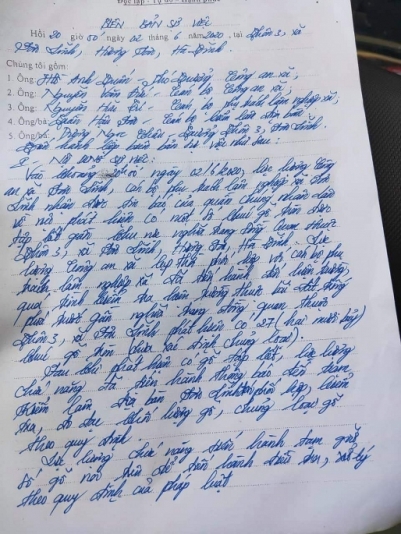 BIÊN BẢN SỰ VIỆC
Hồi 20 giờ 50 ngày 02 tháng 6 năm 2020, tại thôn 3, xã
Sơn Lĩnh, Hương Sơn, Hà Tĩnh
Chúng tôi gồm:
1 Ông: Hồ Anh Quân - Công an xã,
2. Ông: Nguyễn Văn - Cán bộ Công an xã,
3. Ông: Nguyễn Hải - Cán bộ phụ trách lâm nghiệp xã,
4. Ông/bà: - Cán bộ kiểm lâm địa bàn
5. Ông/bà: Ngọc - Trưởng thôn 3, Sơn Lĩnh.
lập biên bản sự việc như sau:
I - Nội dung sự việc:
Vào khoảng 20 ngày 02/6/2020, lực lượng Công
an xã Sơn Lĩnh, cán bộ phụ trách lâm nghiệp xã Sơn
Lĩnh nhận được tin báo của quần chúng nhân dân
về việc phát hiện có một số khúc gỗ tròn được
tập kết gần khu vực nghĩa trang thuộc
thôn 3, xã Sơn Lĩnh, Hương Sơn, Hà Tĩnh. Lực
lượng Công an xã phối hợp với cán bộ phụ
trách lâm nghiệp xã đã tiến hành đến hiện trường,
qua kiểm tra hiện trường thuộc
phía trước gần nghĩa trang thuộc
thôn 3, xã Sơn Lĩnh phát hiện có 27 (hai mươi bảy)
khúc gỗ tròn (chưa xác định chủng loại).
Sau khi phát hiện có gỗ tập kết, lực lượng
chức năng đã tiến hành thông báo đến trạm
Kiểm lâm, địa bàn Sơn Lĩnh phối hợp kiểm
tra, đo đạc khối lượng gỗ, chủng loại gỗ
theo quy định.
Lực lượng chức năng tiến hành tạm giữ
số gỗ nói trên để tiến hành điều tra, xử lý
theo quy định của pháp luật